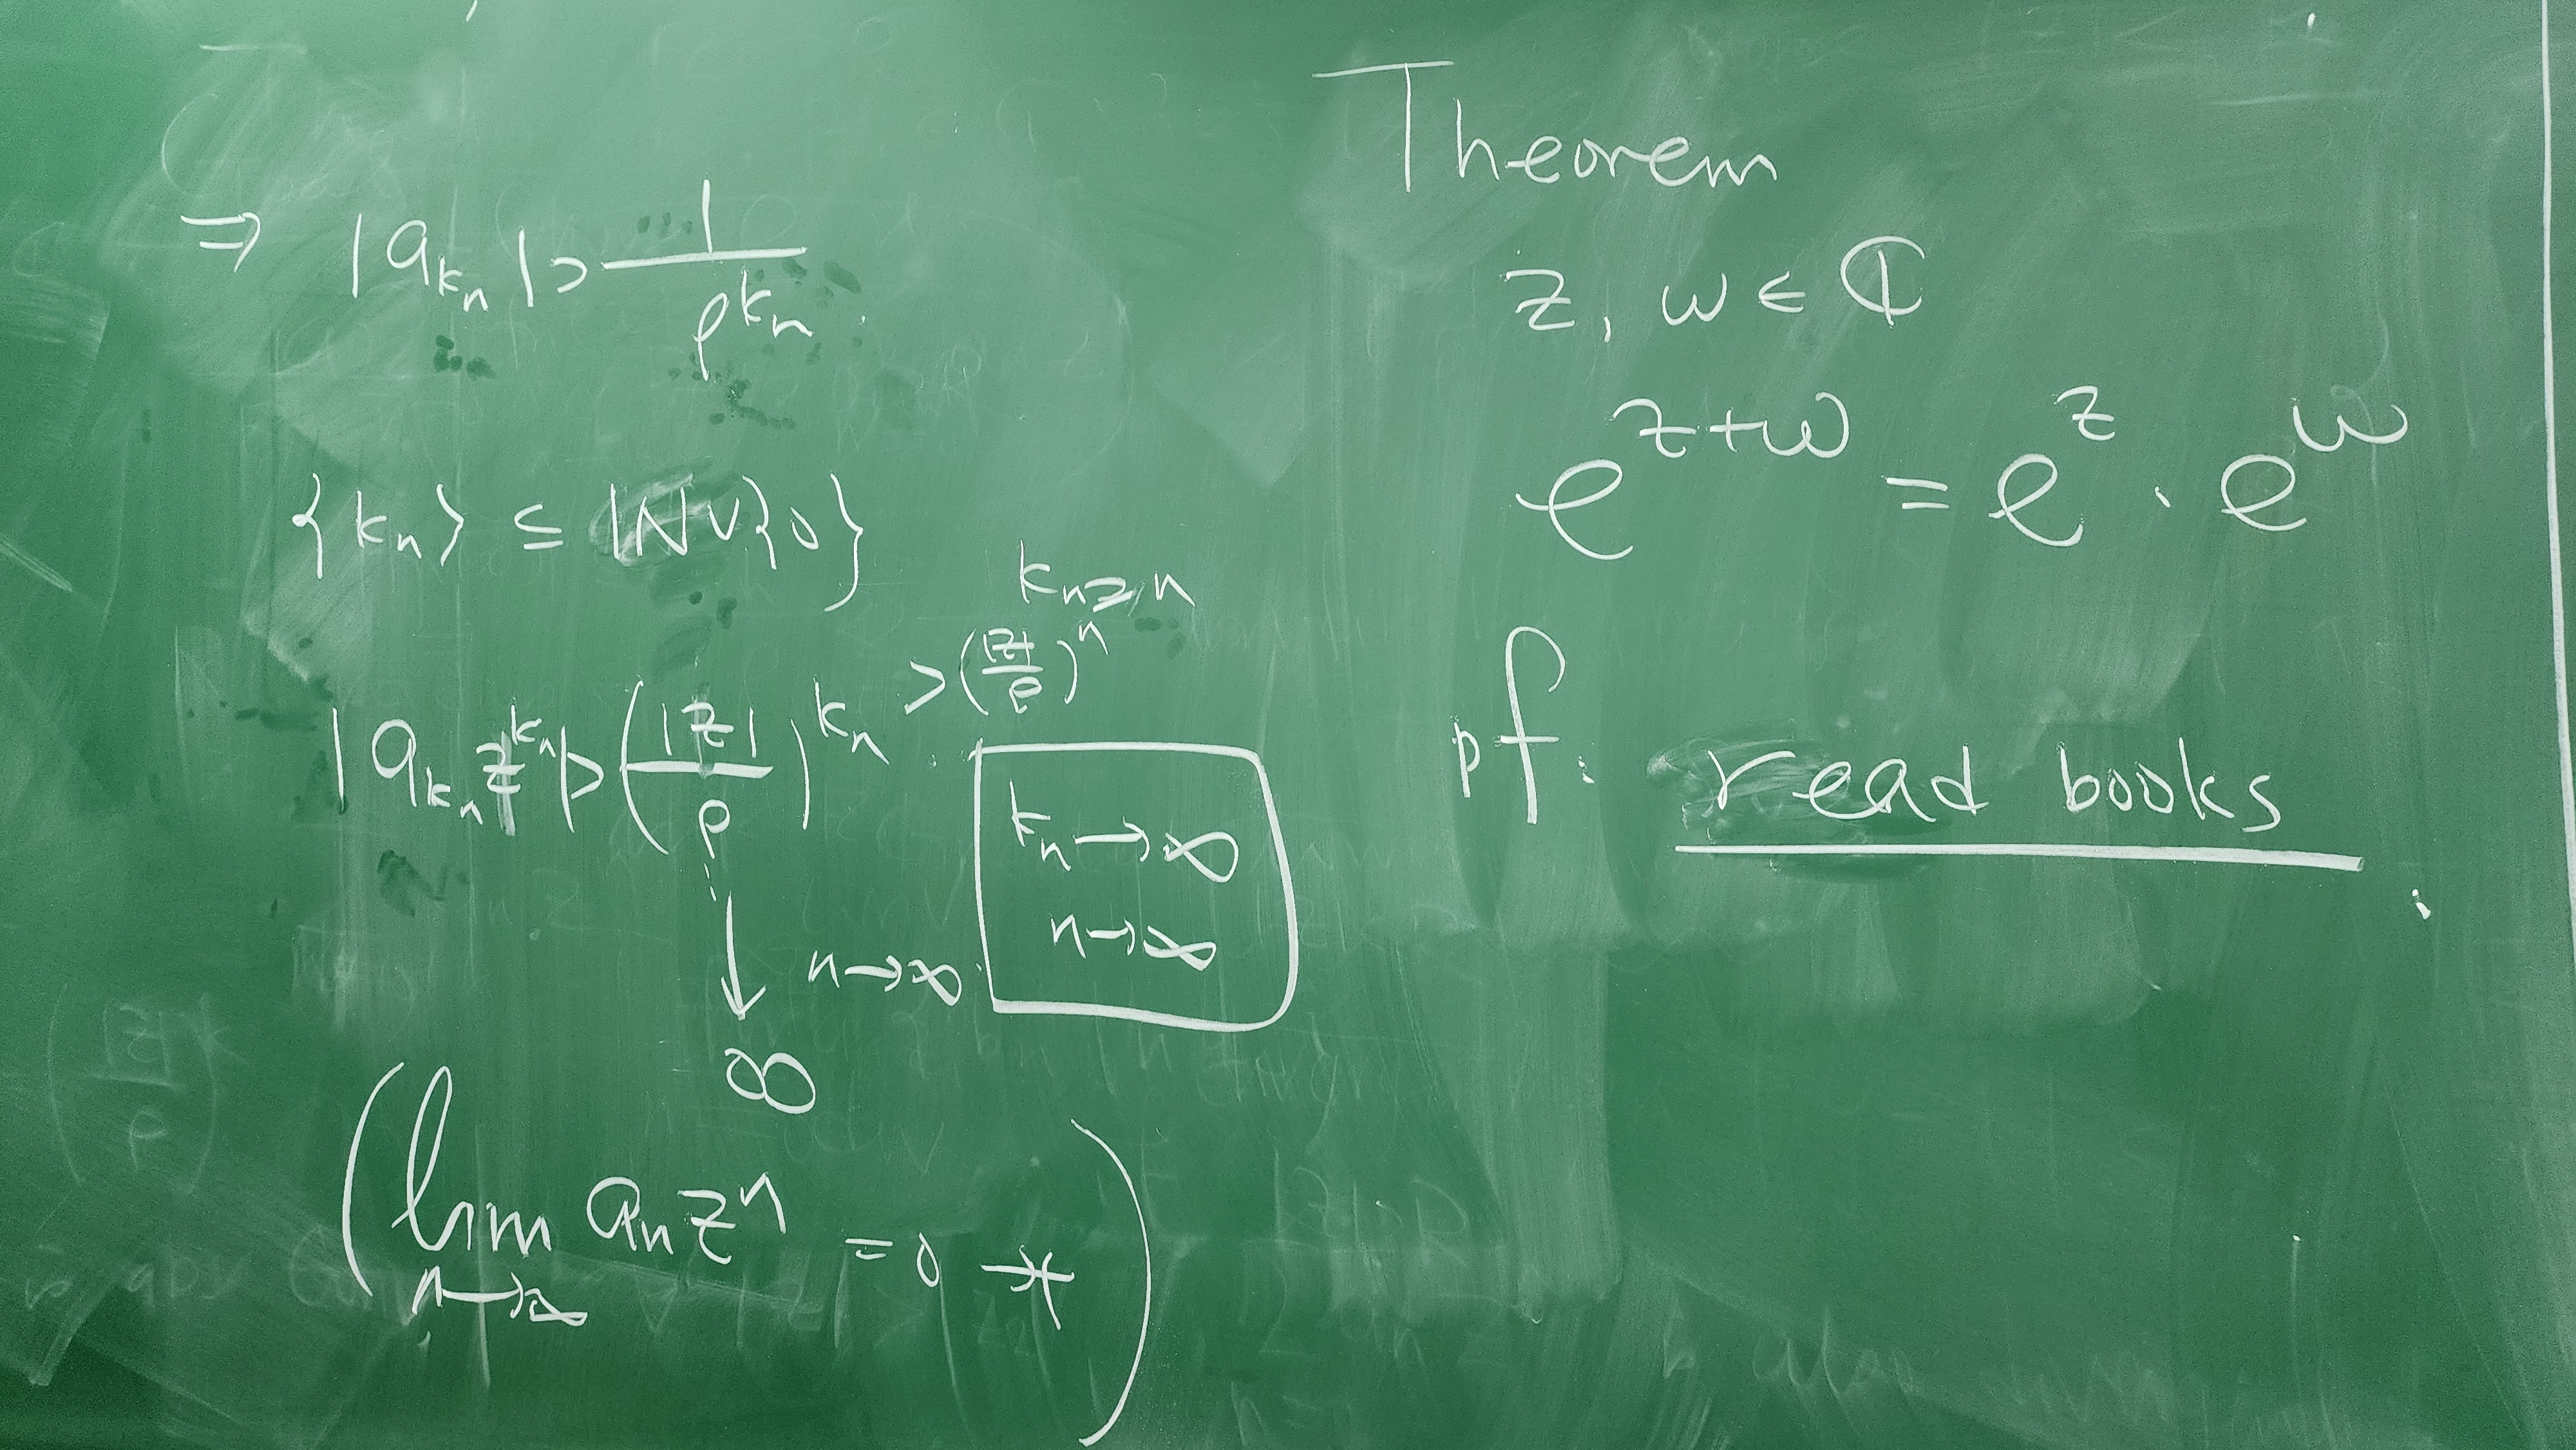 ⇒ |a_{k_n}| > 1/ρ^{k_n}.
{k_n} ⊆ ℕ∪{0}
k_n ≥ n
|a_{k_n} z^{k_n}| > (|z|/ρ)^{k_n} > (|z|/ρ)^n
k_n → ∞
n → ∞
↓ n → ∞
∞
(lim_{n→∞} a_n z^n = 0 →←)
Theorem
z, w ∈ ℂ
e^{z+w} = e^z · e^w
pf: read books.